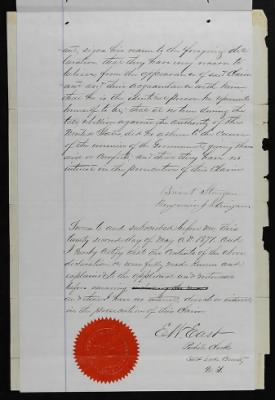 and signs his name to the foregoing dec-
laration that they have every reason to
believe from the appearance of said Claim-
ant and their acquaintance with him
that he is the identical person he represents
himself to be, that at no time during the
late rebellion against the authority of the
United States did he adhere to the cause
of the enemies of the Government giving them
aid or Comfort and that they have no
interest in the prosecution of this Claim
Stringam
Benjamin Stringam
Sworn to and subscribed before me this
twenty second day of May A.D. 1871. And
I hereby Certify that the Contents of the above
declaration &c were fully made known and
explained to the applicant and witnesses
before swearing
and that I have no interest, direct or indirect
in the prosecution of this Claim
E W East
Probate Clerk
Salt Lake County
U. T.